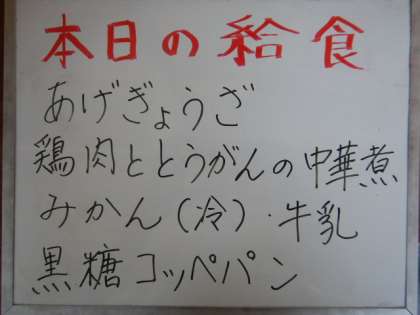 本日の給食
あげぎょうざ
鶏肉ととうがんの中華煮
みかん(冷)・牛乳
黒糖コッペパン